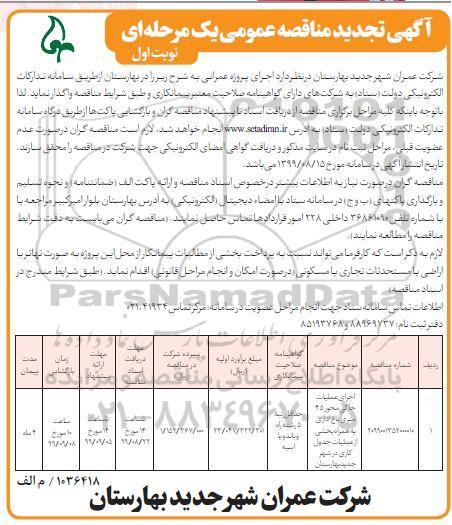 آگهی تجدید مناقصه عمومی یک مرحله‌ای
نوبت اول
شرکت عمران شهر جدید بهارستان درنظردارد اجرای پروژه عمرانی به شرح زیر را در بهارستان ازطریق سامانه تدارکات
الکترونیکی دولت (ستاد) به شرکت‌های دارای گواهینامه صلاحیت معتبر پیمانکاری و طبق شرایط مناقصه واگذار نماید. لذا
باتوجه باینکه کلیه مراحل برگزاری مناقصه از دریافت اسناد تا پیشنهاد مناقصه گران و بازگشایی پاکت‌ها ازطریق درگاه سامانه
تدارکات الکترونیکی دولت (ستاد) به آدرس www.setadiran.ir انجام خواهد شد، لازم است مناقصه گران درصورت عدم
عضویت قبلی، مراحل ثبت نام در سایت مذکور و دریافت گواهی امضای الکترونیکی جهت شرکت در مناقصه را محقق سازند.
تاریخ انتشار آگهی در سامانه مورخ ۱۳۹۹/۰۸/۱۵ می‌باشد.
مناقصه گران درصورت نیاز به اطلاعات بیشتر درخصوص اسناد مناقصه و ارائه پاکت الف (ضمانتنامه) و نحوه تسلیم
و بارگذاری پاکتهای (ب و ج) در سامانه ستاد با امضاء دیجیتال (الکترونیکی) به آدرس بهارستان بلوار امیرکبیر مراجعه یا
با شماره تلفن ۳۶۸۶۱۰۹۰ داخلی ۲۲۸ امور قراردادها تماس حاصل نمایند. (مناقصه گران می‌بایست به دقت شرایط
مناقصه را مطالعه نمایند).
لازم به ذکر است که کارفرما می‌تواند نسبت به پرداخت بخشی از مطالبات پیمانکار از محل این پروژه به صورت تهاتر با
اراضی یا مستحدثات تجاری یا مسکونی (درصورت امکان و انجام مراحل قانونی) اقدام نماید. (طبق شرایط مندرج در
اسناد مناقصه)
اطلاعات تماس سامانه ستاد جهت انجام مراحل عضویت در سامانه: مرکز تماس ۴۱۹۳۴-۰۲۱
دفتر ثبت نام: ۸۸۹۶۹۷۳۷ و ۸۵۱۹۳۷۶۸
ردیف شماره مناقصه موضوع مناقصه گواهینامه صلاحیت پیمانکاری مبلغ برآورد اولیه (ریال) سپرده شرکت در مناقصه (ریال) مهلت دریافت اسناد مناقصه مهلت ارائه پیشنهاد زمان بازگشایی مدت پیمان
۱ ۲۰۹۹۰۰۱۳۵۲۰۰۰۰۱۰ اجرای عملیات خاکی محور ۴۵ متری باغ اداری به همراه بخشی از عملیات جدول کاری در شهر جدید بهارستان حداقل رتبه ۵ رشته راه و باند و یا ابنیه ۲۳/۰۴۷/۳۲۲/۲۰۱ ۱/۱۵۲/۳۶۷/۰۰۰ تا ساعت ۱۴ مورخ ۹۹/۰۸/۲۲ تا ساعت ۱۴ مورخ ۹۹/۰۹/۰۵ ساعت ۱۰ مورخ ۹۹/۰۹/۰۸ ۴ ماه
۱۰۳۶۴۱۸ / م الف
شرکت عمران شهر جدید بهارستان
ParsNamadData
پایگاه اطلاع رسانی مناقصه و مزایده
۰۲۱-۸۸۳۴۹۶۷۰-۵